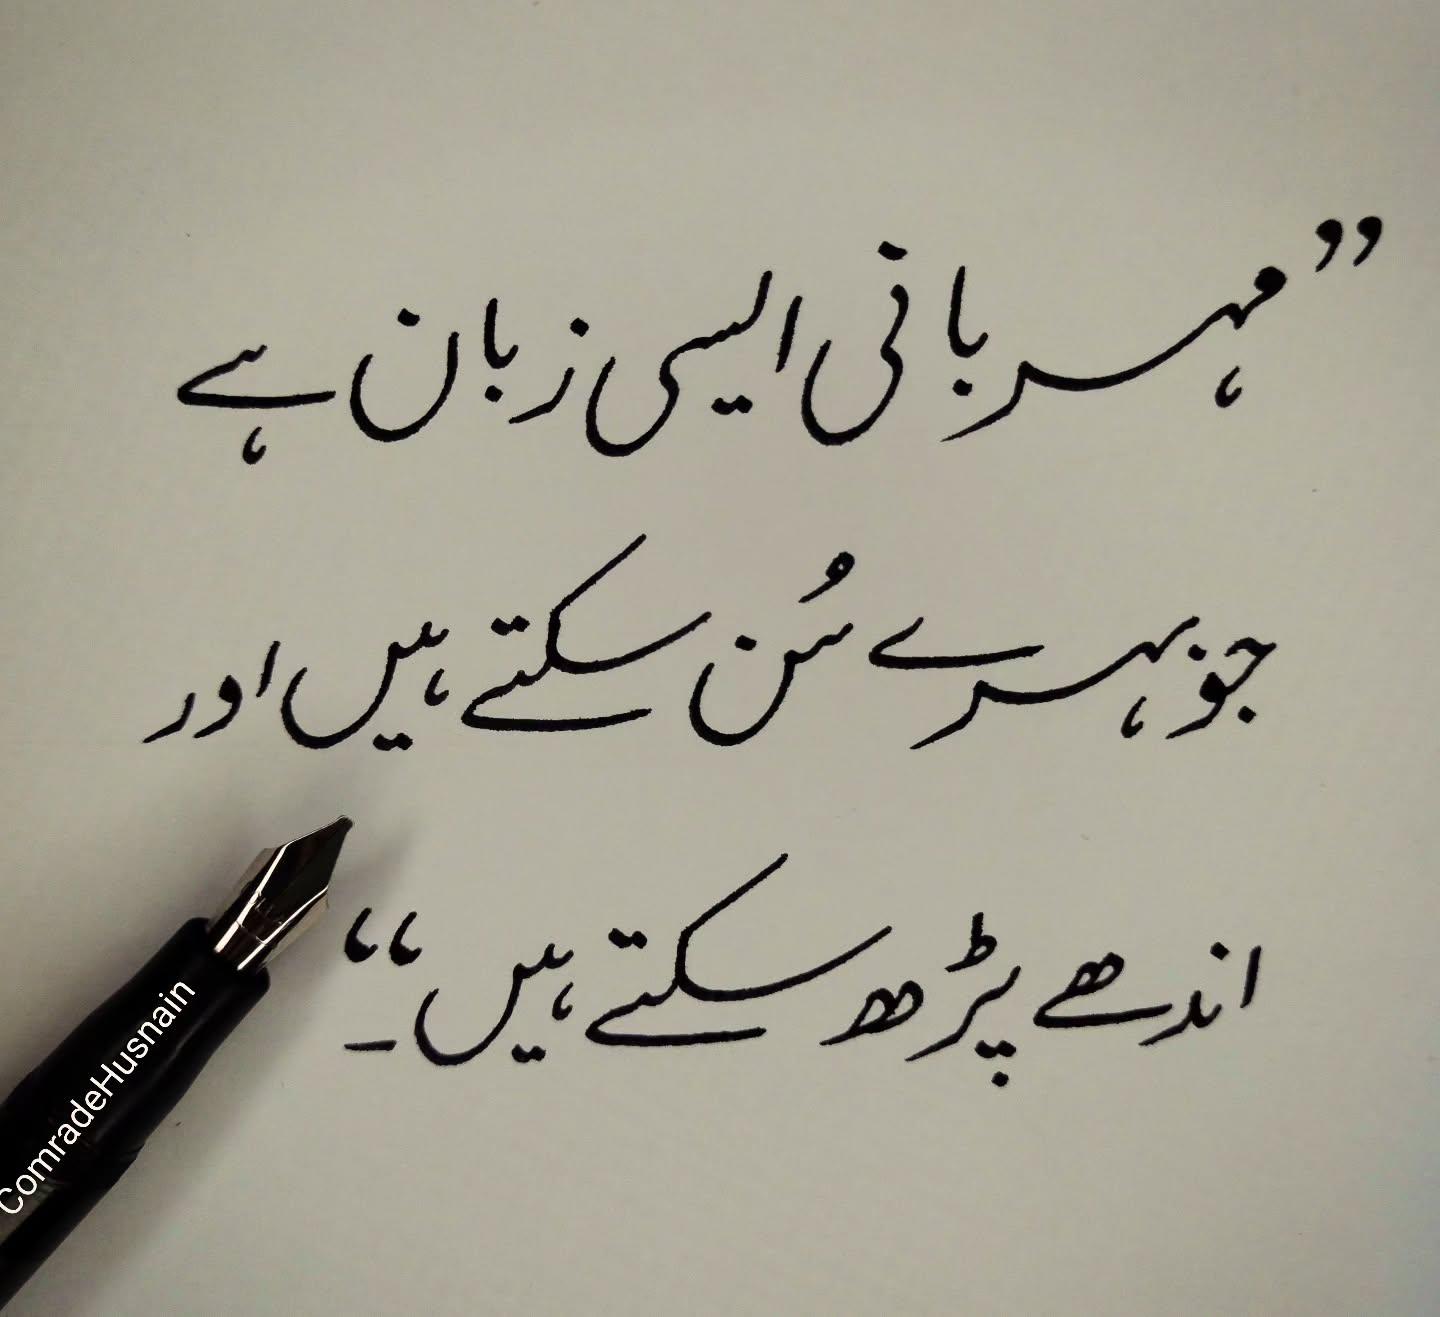 ”مہربانی ایسی زبان ہے
جو بہرے سُن سکتے ہیں اور
اندھے پڑھ سکتے ہیں۔“
ComradeHusnain